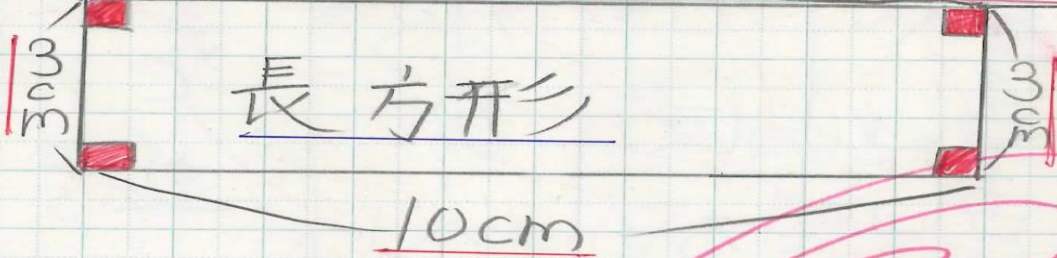 3cm
長方形
3cm
10cm